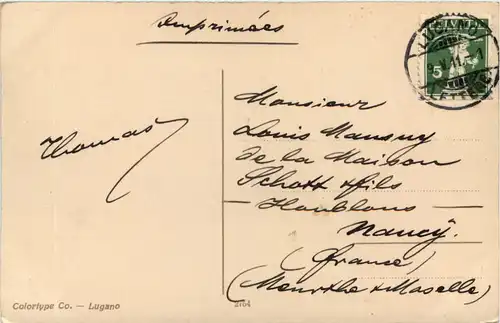 Imprimées
LUGANO
9.V.11.-1
LETTERE
5
Monsieur
Louis Mansuy
de la Maison
Schott & fils
Houblons
Nancÿ.
(France)
(Meurthe & Moselle)
Thomas
Colortype Co. — Lugano
2764